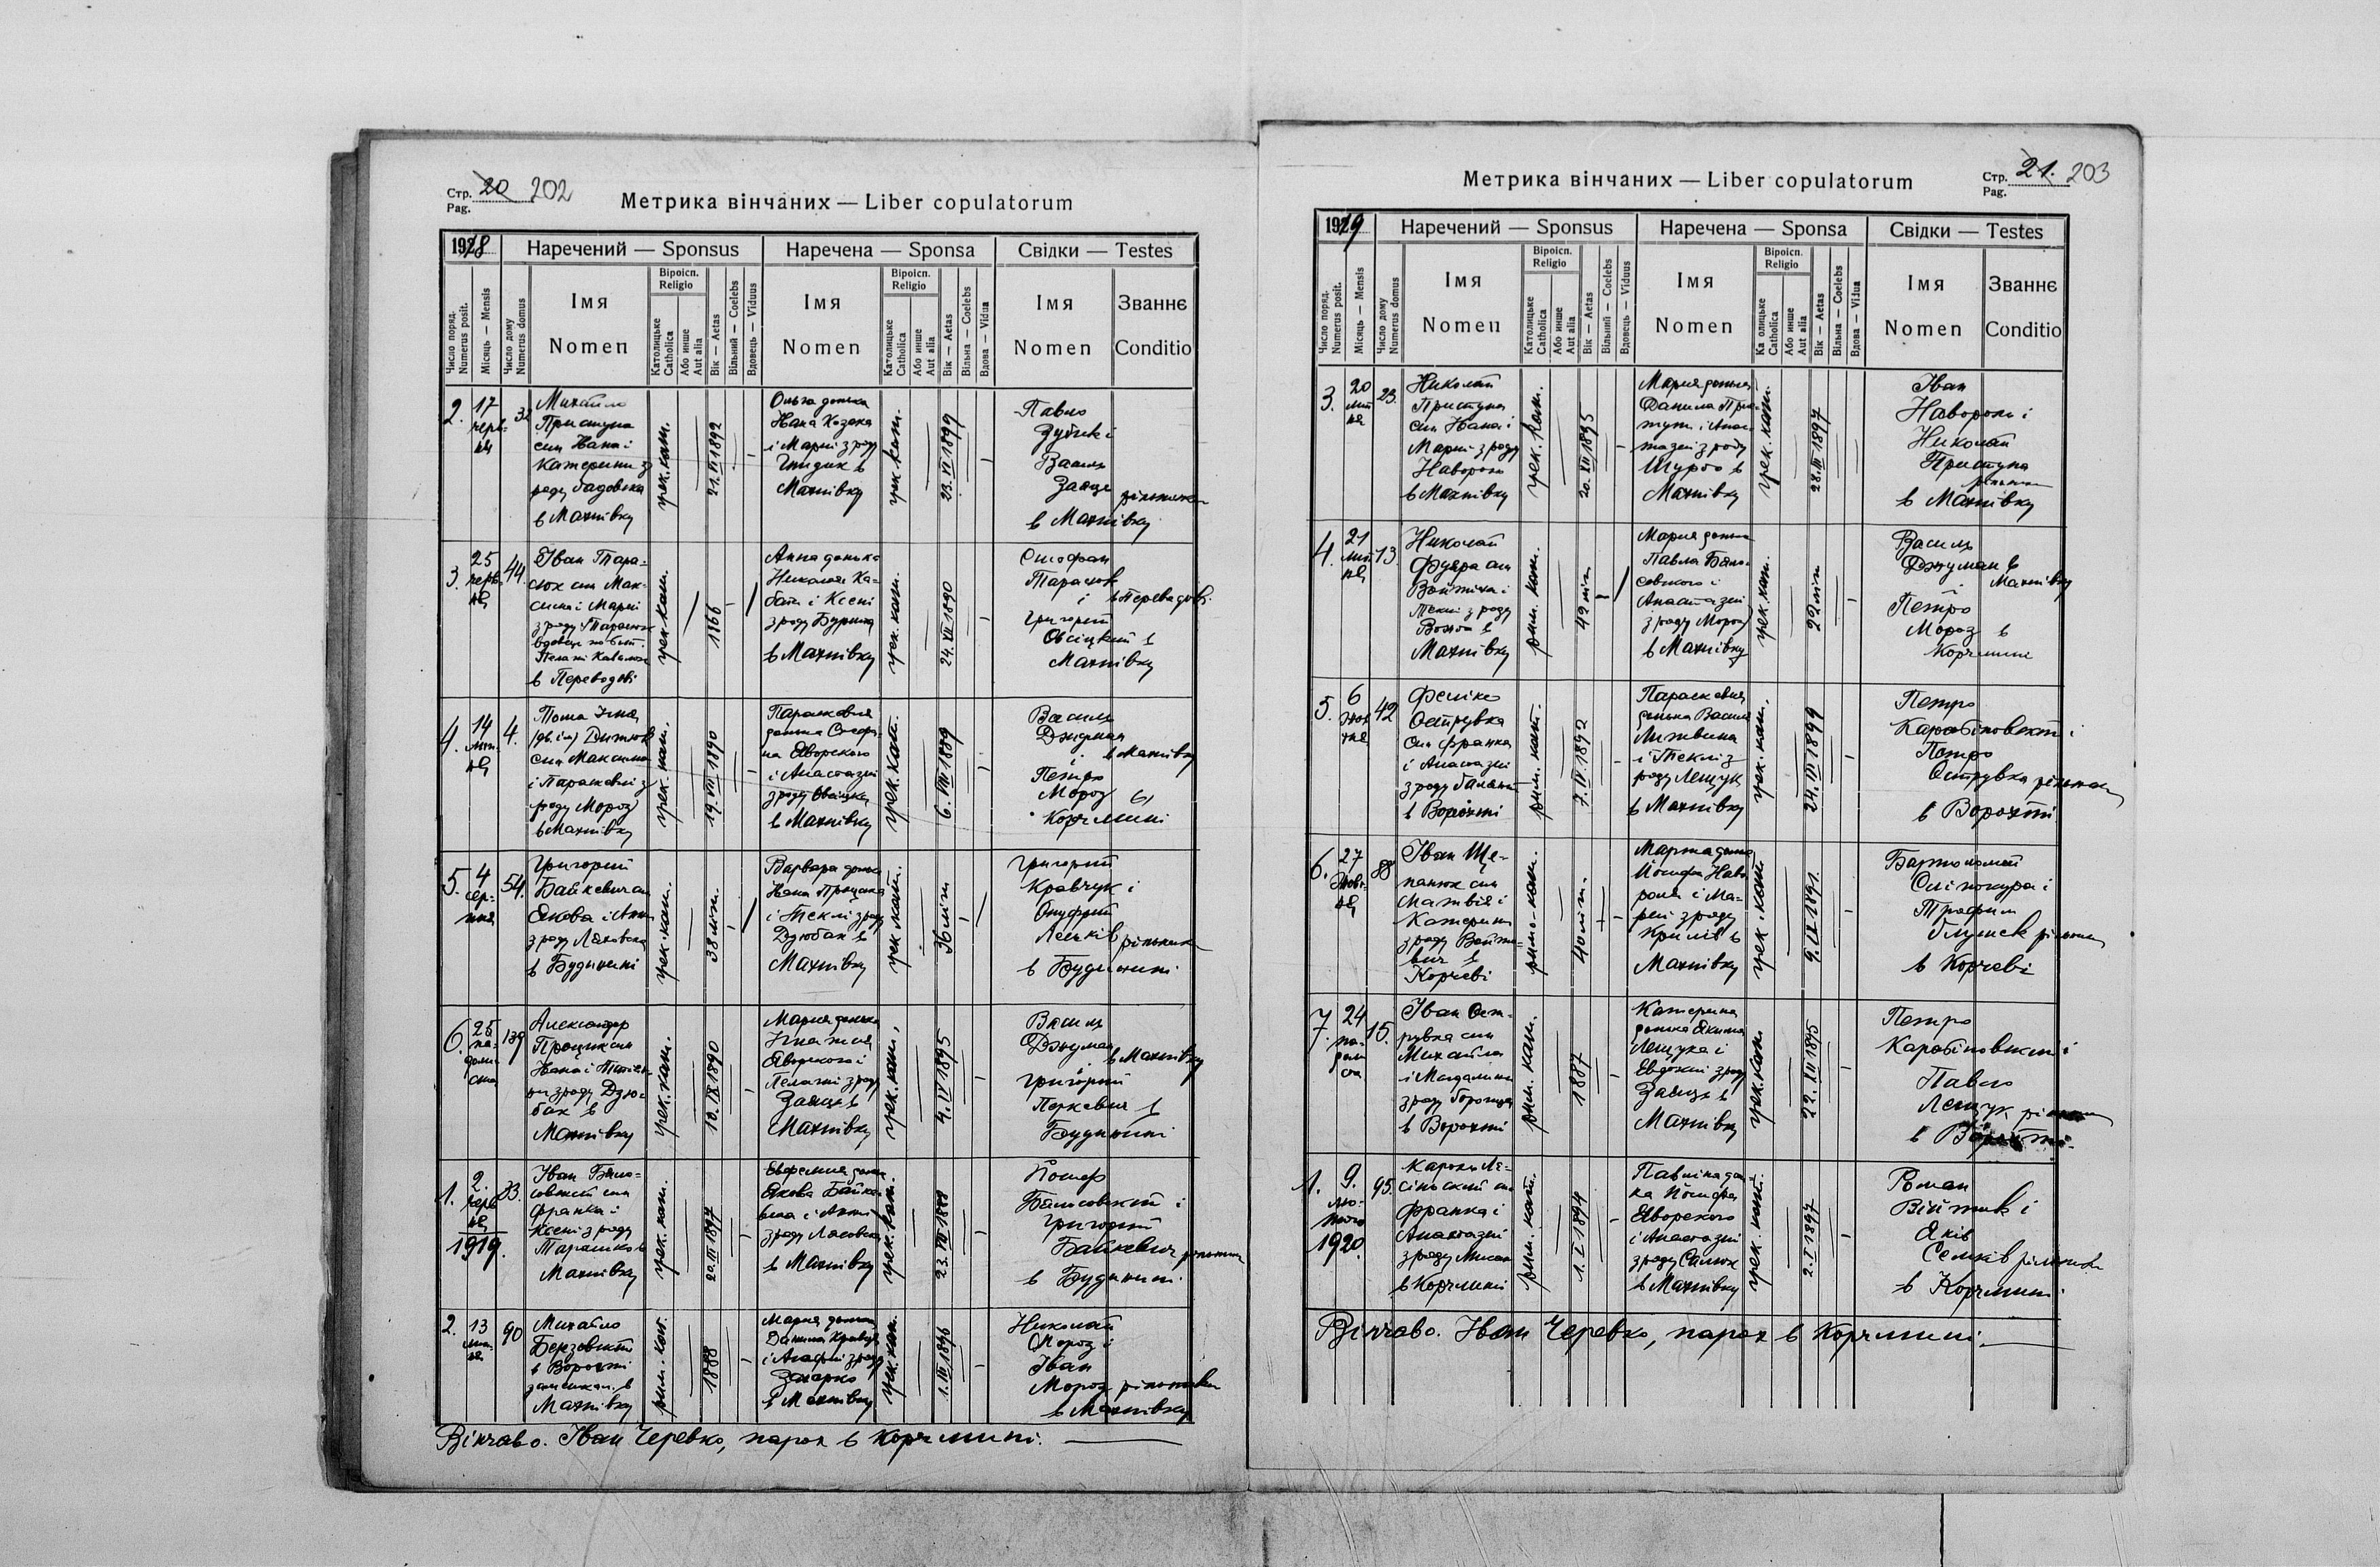 Стр. 20 202
Pag.
Метрика вінчаних — Liber copulatorum
1918
Наречений — Sponsus
Наречена — Sponsa
Свідки — Testes
Число поряд. Numerus posit.
Місяць — Mensis
Число дому Numerus domus
Імя Nomen
Віроісп. Religio
Католицьке Catholica
Або инше Aut alia
Вік — Aetas
Вільний — Coelebs
Вдовець — Viduus
Імя Nomen
Віроісп. Religio
Католицьке Catholica
Або инше Aut alia
Вік — Aetas
Вільна — Coelebs
Вдова — Vidua
Імя Nomen
Званнє Conditio
2. 17 черв- ня 32
Михайло
Приступа
син Івана і
Катерини з
роду Садовска
в Махнівку
грек. кат.
21.VI 1892
Ольга донька
Івана Козака
і Марії з роду
в
Махнівку
грек. кат.
23.VI 1899
Павло
і
Василь
Заяць рільники
в Махнівку
3. 25 черв- ня 44.
Іван Тара-
сюк син Мак-
сима і Марії
з роду Тарасюк
вдовець по
Пелагії
в Переводові
грек. кат.
1866
Анна донька
Николая Ка-
бати і Ксені
з роду
в Махнівку
грек. кат.
24.VII 1890
Стефан
Тарасюк
і в Переводові.
Григорий
Овсіцкий в
Махнівку
4. 14 лип- ня 4.
Тома Ігна
(дв. ім)
син Максима
і Параскевії з
роду Мороз
в Махнівку
грек. кат.
19.VIII 1890
Параскевия
донька Стефа-
на Яворского
і Анастазії
з роду Овсіцка
в Махнівку
грек. кат.
6.VIII 1889
Василь
Джуман
і в Махнівку
Петро
Мороз в
Корчмині
5. 4 сер- пня 54.
Григорий
Байкевич син
Якова і Анни
з роду Лясовска
в Будинині
грек. кат.
38 літ.
Варвара донька
Івана Процика
і Теклі з роду
Дзюбак в
Махнівку
грек. кат.
36 літ
Григорий
Кравчук і
Онуфрий
Леськів рільники
в Будинині
6. 25 па- доли- ста 139
Александер
Процик син
Івана і
з роду Дзю-
бак в
Махнівку
грек. кат.
10.IX 1890
Мария донька
Ігнатия
Яворского і
Пелагії з роду
Заяць в
Махнівку
грек. кат.
4.IV 1895
Василь
Джуман в Махнівку
і
Григорий
в
Будинині
1. 2. черв- ня 1919. 33.
Іван Бяло-
совский син
Франка і
Ксені з роду
в
Махнівку
грек. кат.
20.III 1897
Евфемия донька
Якова Байке-
вича і Анни
з роду Лясовска
в Махнівку
грек. кат.
23.VII 1888
Йосиф
Бялосовский і
Григорий
Байкевич рільники
в Будинині.
2. 13 лип- ня 90
Михайло
Бензовский
в Ворохті
замешкал. в
Махнівку
рим. кат.
1888
Мария донька
Данила Кравця
і Агафії з роду
Захарко
в Махнівку
грек. кат.
1.III 1896
Николай
Мороз і
Іван
Мороз рільники
в Махнівку
Вінчав о. Іван Черевко, парох в Корчмині.
Стр. 21. 203
Pag.
Метрика вінчаних — Liber copulatorum
1919
Наречений — Sponsus
Наречена — Sponsa
Свідки — Testes
Число поряд. Numerus posit.
Місяць — Mensis
Число дому Numerus domus
Імя Nomen
Віроісп. Religio
Католицьке Catholica
Або инше Aut alia
Вік — Aetas
Вільний — Coelebs
Вдовець — Viduus
Імя Nomen
Віроісп. Religio
Ка олицьке Catholica
Або инше Aut alia
Вік — Aetas
Вільна — Coelebs
Вдова — Vidua
Імя Nomen
Званнє Conditio
3. 20 лип ня 23.
Николай
Приступа
син Івана і
Марії з роду
Навроля
в Махнівку
грек. кат.
20.XII 1895
Мария донька
Данила При-
ступи і Анас-
тазії з роду
Щурко в
Махнівку
грек. кат.
28.III 1897
Іван
Навроля і
Николай
Приступа
рільники
в Махнівку
4. 21 лип- ня 13.
Николай
син
Войтіха і
Теклі з роду
в
Махнівку
рим. кат.
42 літ
Мария донька
Павла Бяло-
совского і
Анастазії
з роду Мороз
в Махнівку
грек. кат.
22 літ
Василь
Джуман в
і Махнівку
Петро
Мороз в
Корчмині
5. 6 жов тня 42
Фелікс
Острувка
син Франка
і Анастазії
з роду
в Ворохті
рим. кат.
7.IV.1892
Параскевия
донька Василя
Литвина
і Теклі з
роду Лещук
в Махнівку
грек. кат.
24.III 1899
Петро
Карабіновский і
Петро
Острувка рільники
в Ворохті
6. 27 жовт- ня 88
Іван Ще-
панюк син
Матвія і
Катерини
з роду Войто-
вич в
Корчеві
римо-кат.
40 літ.
Марта донька
Йосифа Нав-
роля і Ма-
рії з роду
Крилів в
Махнівку
грек. кат.
9.IX 1891.
Бартоломей
і
Трофим
рільники
в Корчеві
7. 24 па- доли ста 15.
Іван Ост-
рувка син
Михайла
і Магдалини
з роду
в Ворохті
рим. кат.
1887
Катерина
донька Якима
Лещука і
Евдокії з роду
Заяць в
Махнівку
грек. кат.
22.XII 1895
Петро
Карабіновский і
Павло
Лещук рільники
в Ворохті.
1. 9. лю- того 1920. 95.
Кароль Ля-
сіньский син
Франка і
Анастазії
з роду
в Корчмині
рим. кат.
1.I 1894
Павліна донь-
ка Йосифа
Яворского
і Анастазії
з роду
в Махнівку
грек. кат.
2.I 1897
Роман
Війтик і
Яків
Сеньків рільники
в Корчмині
Вінчав о. Іван Черевко, парох в Корчмині.